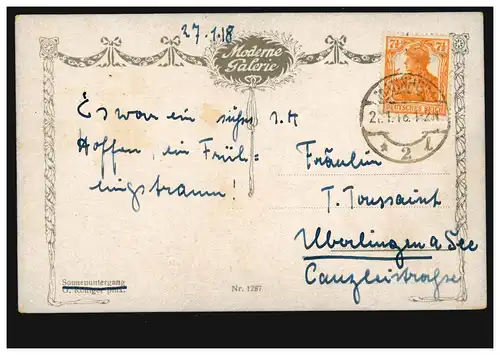 27.1.18
Moderne
Galerie
7½ 7½
DEUTSCHES REICH
Es war ein
Hoffen, ein Früh=
lingstraum!
Fräulein
T. Toussaint
Überlingen a See
Canzleistrasse
* 2
Sonnenuntergang
pinx.
Nr. 1287